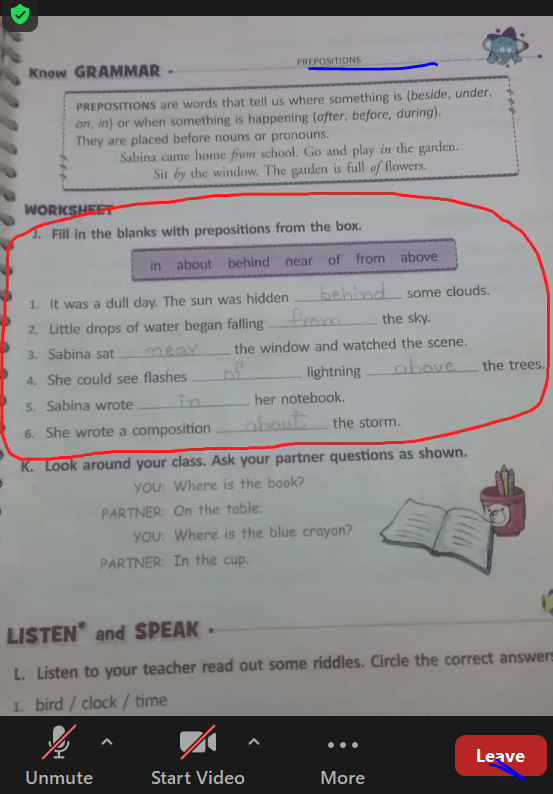 PREPOSITIONS
Know GRAMMAR
PREPOSITIONS are words that tell us where something is (beside, under,
on, in) or when something is happening (after, before, during).
They are placed before nouns or pronouns.
Sabina came home from school. Go and play in the garden.
Sit by the window. The garden is full of flowers.
WORKSHEET
J. Fill in the blanks with prepositions from the box.
in about behind near of from above
1. It was a dull day. The sun was hidden behind some clouds.
2. Little drops of water began falling from the sky.
3. Sabina sat near the window and watched the scene.
4. She could see flashes of lightning above the trees.
5. Sabina wrote in her notebook.
6. She wrote a composition about the storm.
K. Look around your class. Ask your partner questions as shown.
YOU: Where is the book?
PARTNER: On the table.
YOU: Where is the blue crayon?
PARTNER: In the cup.
LISTEN* and SPEAK
L. Listen to your teacher read out some riddles. Circle the correct answers
1. bird / clock / time
Unmute Start Video More Leave